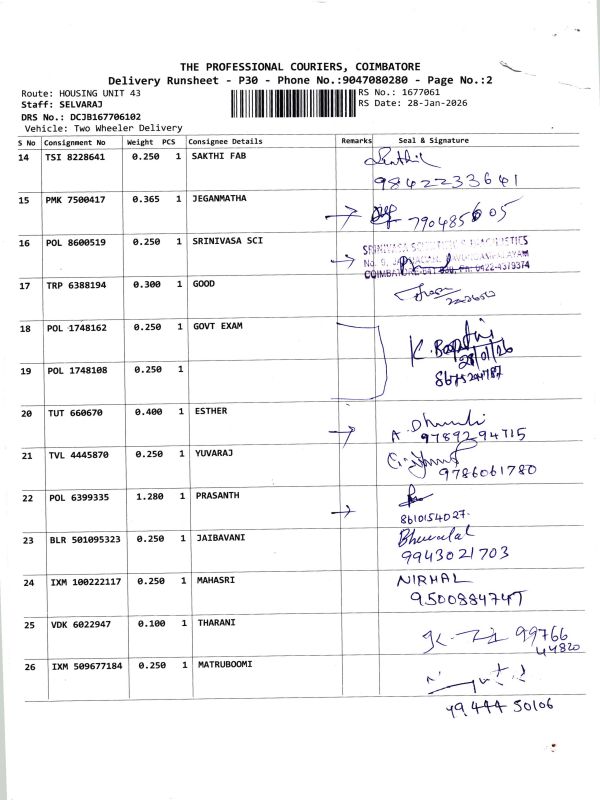 THE PROFESSIONAL COURIERS, COIMBATORE
Delivery Runsheet - P30 - Phone No.:9047080280 - Page No.:2
Route: HOUSING UNIT 43 RS No.: 1677061
Staff: SELVARAJ RS Date: 28-Jan-2026
DRS No.: DCJB167706102
Vehicle: Two Wheeler Delivery
S No Consignment No Weight PCS Consignee Details Remarks Seal & Signature
14 TSI 8228641 0.250 1 SAKTHI FAB Senthil
9842233641
15 PMK 7500417 0.365 1 JEGANMATHA
7904856605
16 POL 8600519 0.250 1 SRINIVASA SCI
COIMBATORE-641 030. PH: 0422-4379374
17 TRP 6388194 0.300 1 GOOD
18 POL 1748162 0.250 1 GOVT EXAM
28/01/26
19 POL 1748108 0.250 1
20 TUT 660670 0.400 1 ESTHER
9789294715
21 TVL 4445870 0.250 1 YUVARAJ
9786061780
22 POL 6399335 1.280 1 PRASANTH
8610154027
23 BLR 501095323 0.250 1 JAIBAVANI
9943021703
24 IXM 100222117 0.250 1 MAHASRI NIRMAL
9500884747
25 VDK 6022947 0.100 1 THARANI 99766
44820
26 IXM 509677184 0.250 1 MATRUBOOMI
49 444 50106